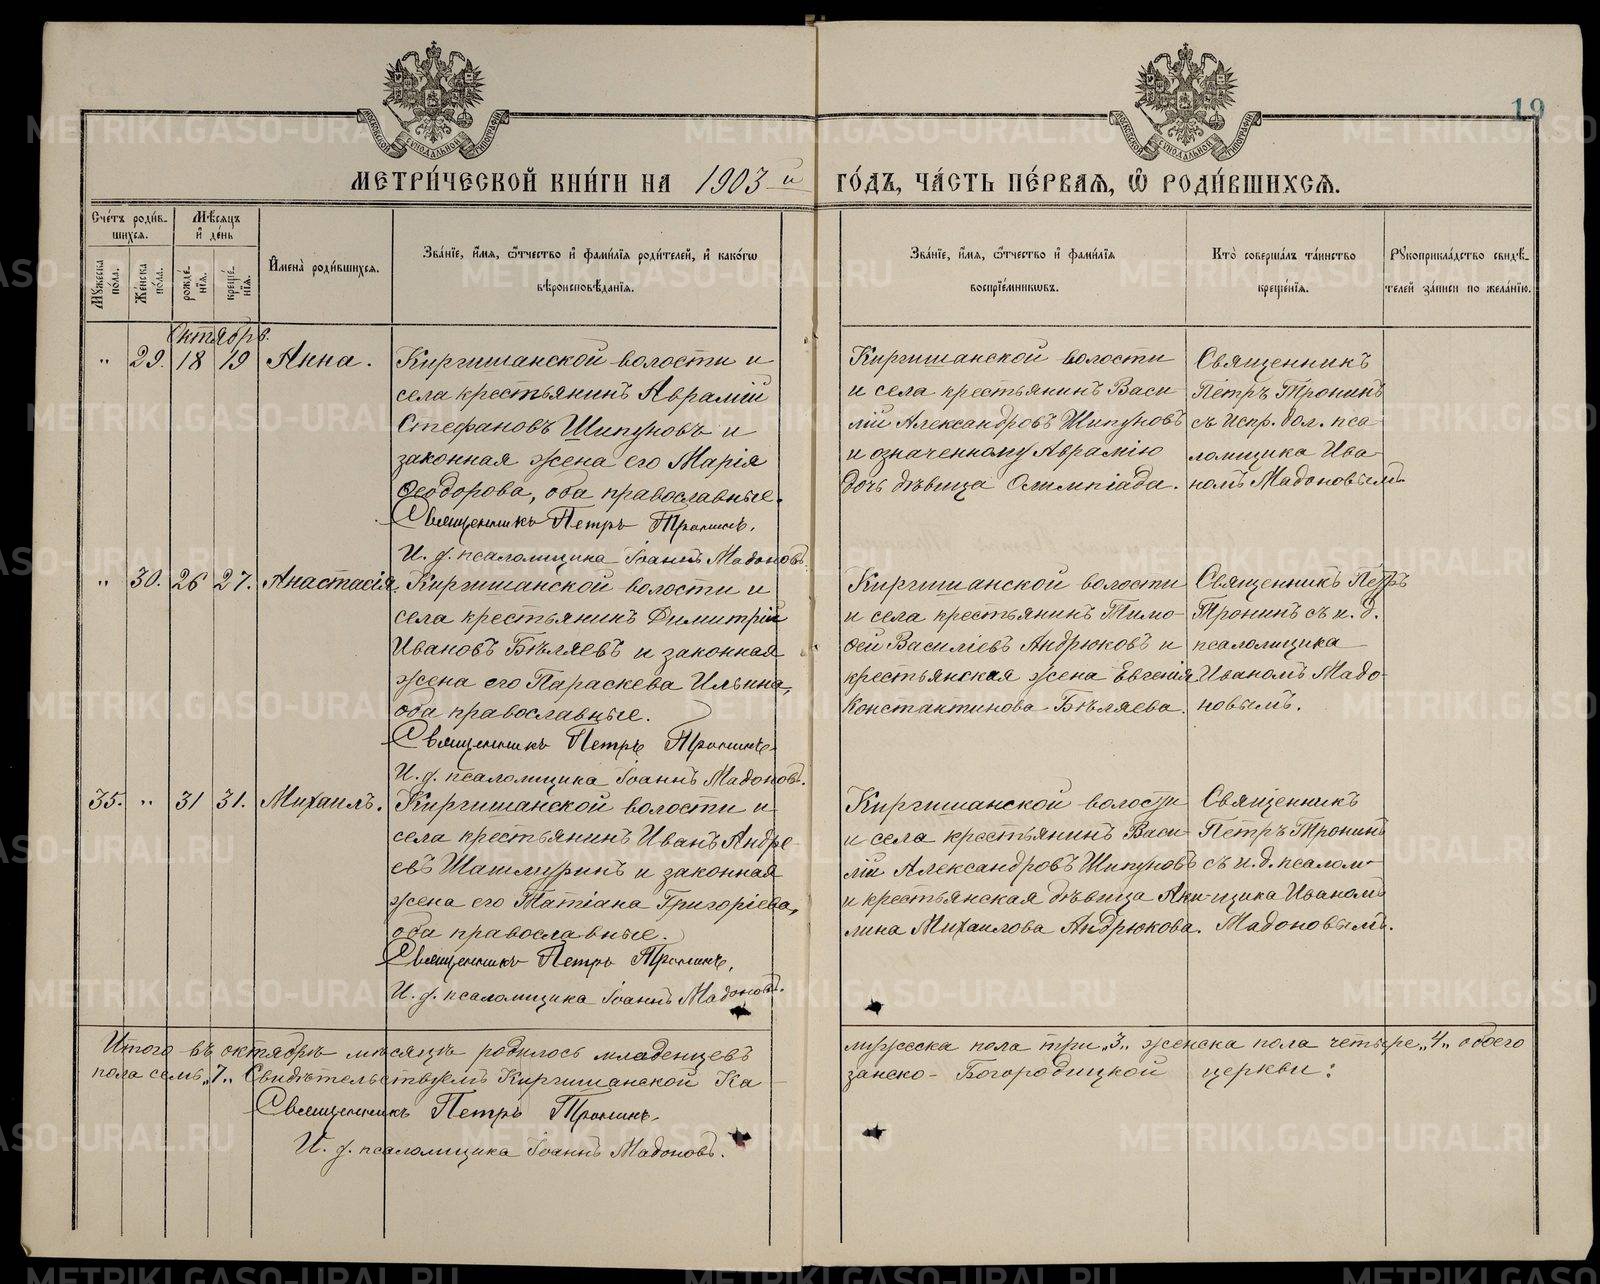 19
МЕТРИ́ЧЕСКОЙ КНИ́ГИ НА 1903 й ГО́ДЪ, ЧА́СТЬ ПЕ́РВАЯ, Ѿ РОДИ́ВШИХСЯ.
Сче́тъ роди́вшихся.
Мужеска по́ла.
Же́нска по́ла.
Мѣ́сяцъ и҆ де́нь
рожде́нїя.
креще́нїя.
И҆мена̀ роди́вшихся.
Зва́нїе, и҆́мя, ѻ҆́тчество и҆ фами́лїя роди́телей, и҆ како́гѡ вѣроисповѣ́данїя.
Зва́нїе, и҆́мя, ѻ҆́тчество и҆ фами́лїя воспрїе́мникѡвъ.
Кто̀ соверша́лъ та́инство креще́нїя.
Рꙋкоприкла́дство свидѣ́телей за́писи по жела́нїю.
Октябрь.
" 29. 18 19 Анна.
Киргишанской волости и
села крестьянинъ Аврамій
Стефановъ Шипуновъ и
законная жена его Марія
Ѳеодорова, оба православные.
Священникъ Петръ Тронинъ.
И. д. псаломщика Іоаннъ Мадоновъ.
Киргишанской волости
и села крестьянинъ Васи-
лій Александровъ Шипуновъ
и означенному Аврамію
дочь дѣвица Олимпіада.
Священникъ
Петръ Тронинъ
съ испр. дол. пса-
ломщика Ива-
номъ Мадоновымъ
" 30. 26 27. Анастасія.
Киргишанской волости и
села крестьянинъ Димитрій
Ивановъ Бѣляевъ и законная
жена его Параскева Ильина,
оба православные.
Священникъ Петръ Тронинъ.
И. д. псаломщика Іоаннъ Мадоновъ.
Киргишанской волости
и села крестьянинъ Тимо-
ѳей Василіевъ Андрюковъ и
крестьянская жена Евгенія
Константинова Бѣляева.
Священникъ Петръ
Тронинъ съ и. д.
псаломщика
Иваномъ Мадо-
новымъ.
35. " 31 31. Михаилъ.
Киргишанской волости и
села крестьянинъ Иванъ Андре-
евъ Шашмуринъ и законная
жена его Татіана Григоріева,
оба православные.
Священникъ Петръ Тронинъ.
И. д. псаломщика Іоаннъ Мадоновъ.
Киргишанской волости
и села крестьянинъ Васи-
лій Александровъ Шипуновъ
и крестьянская дѣвица Аки-
лина Михаилова Андрюкова.
Священникъ
Петръ Тронинъ
съ и. д. псалом-
щика Иваномъ
Мадоновымъ.
Итого въ октябрѣ мѣсяцѣ родилось младенцевъ мужеска пола три „3„ женска пола четыре „4„ обоего
пола семь „7„ Свидѣтельствуемъ Киргишанской Ка- занско-Богородицкой церкви:
Священникъ Петръ Тронинъ.
И. д. псаломщика Іоаннъ Мадоновъ.
METRIKI.GASO-URAL.RU